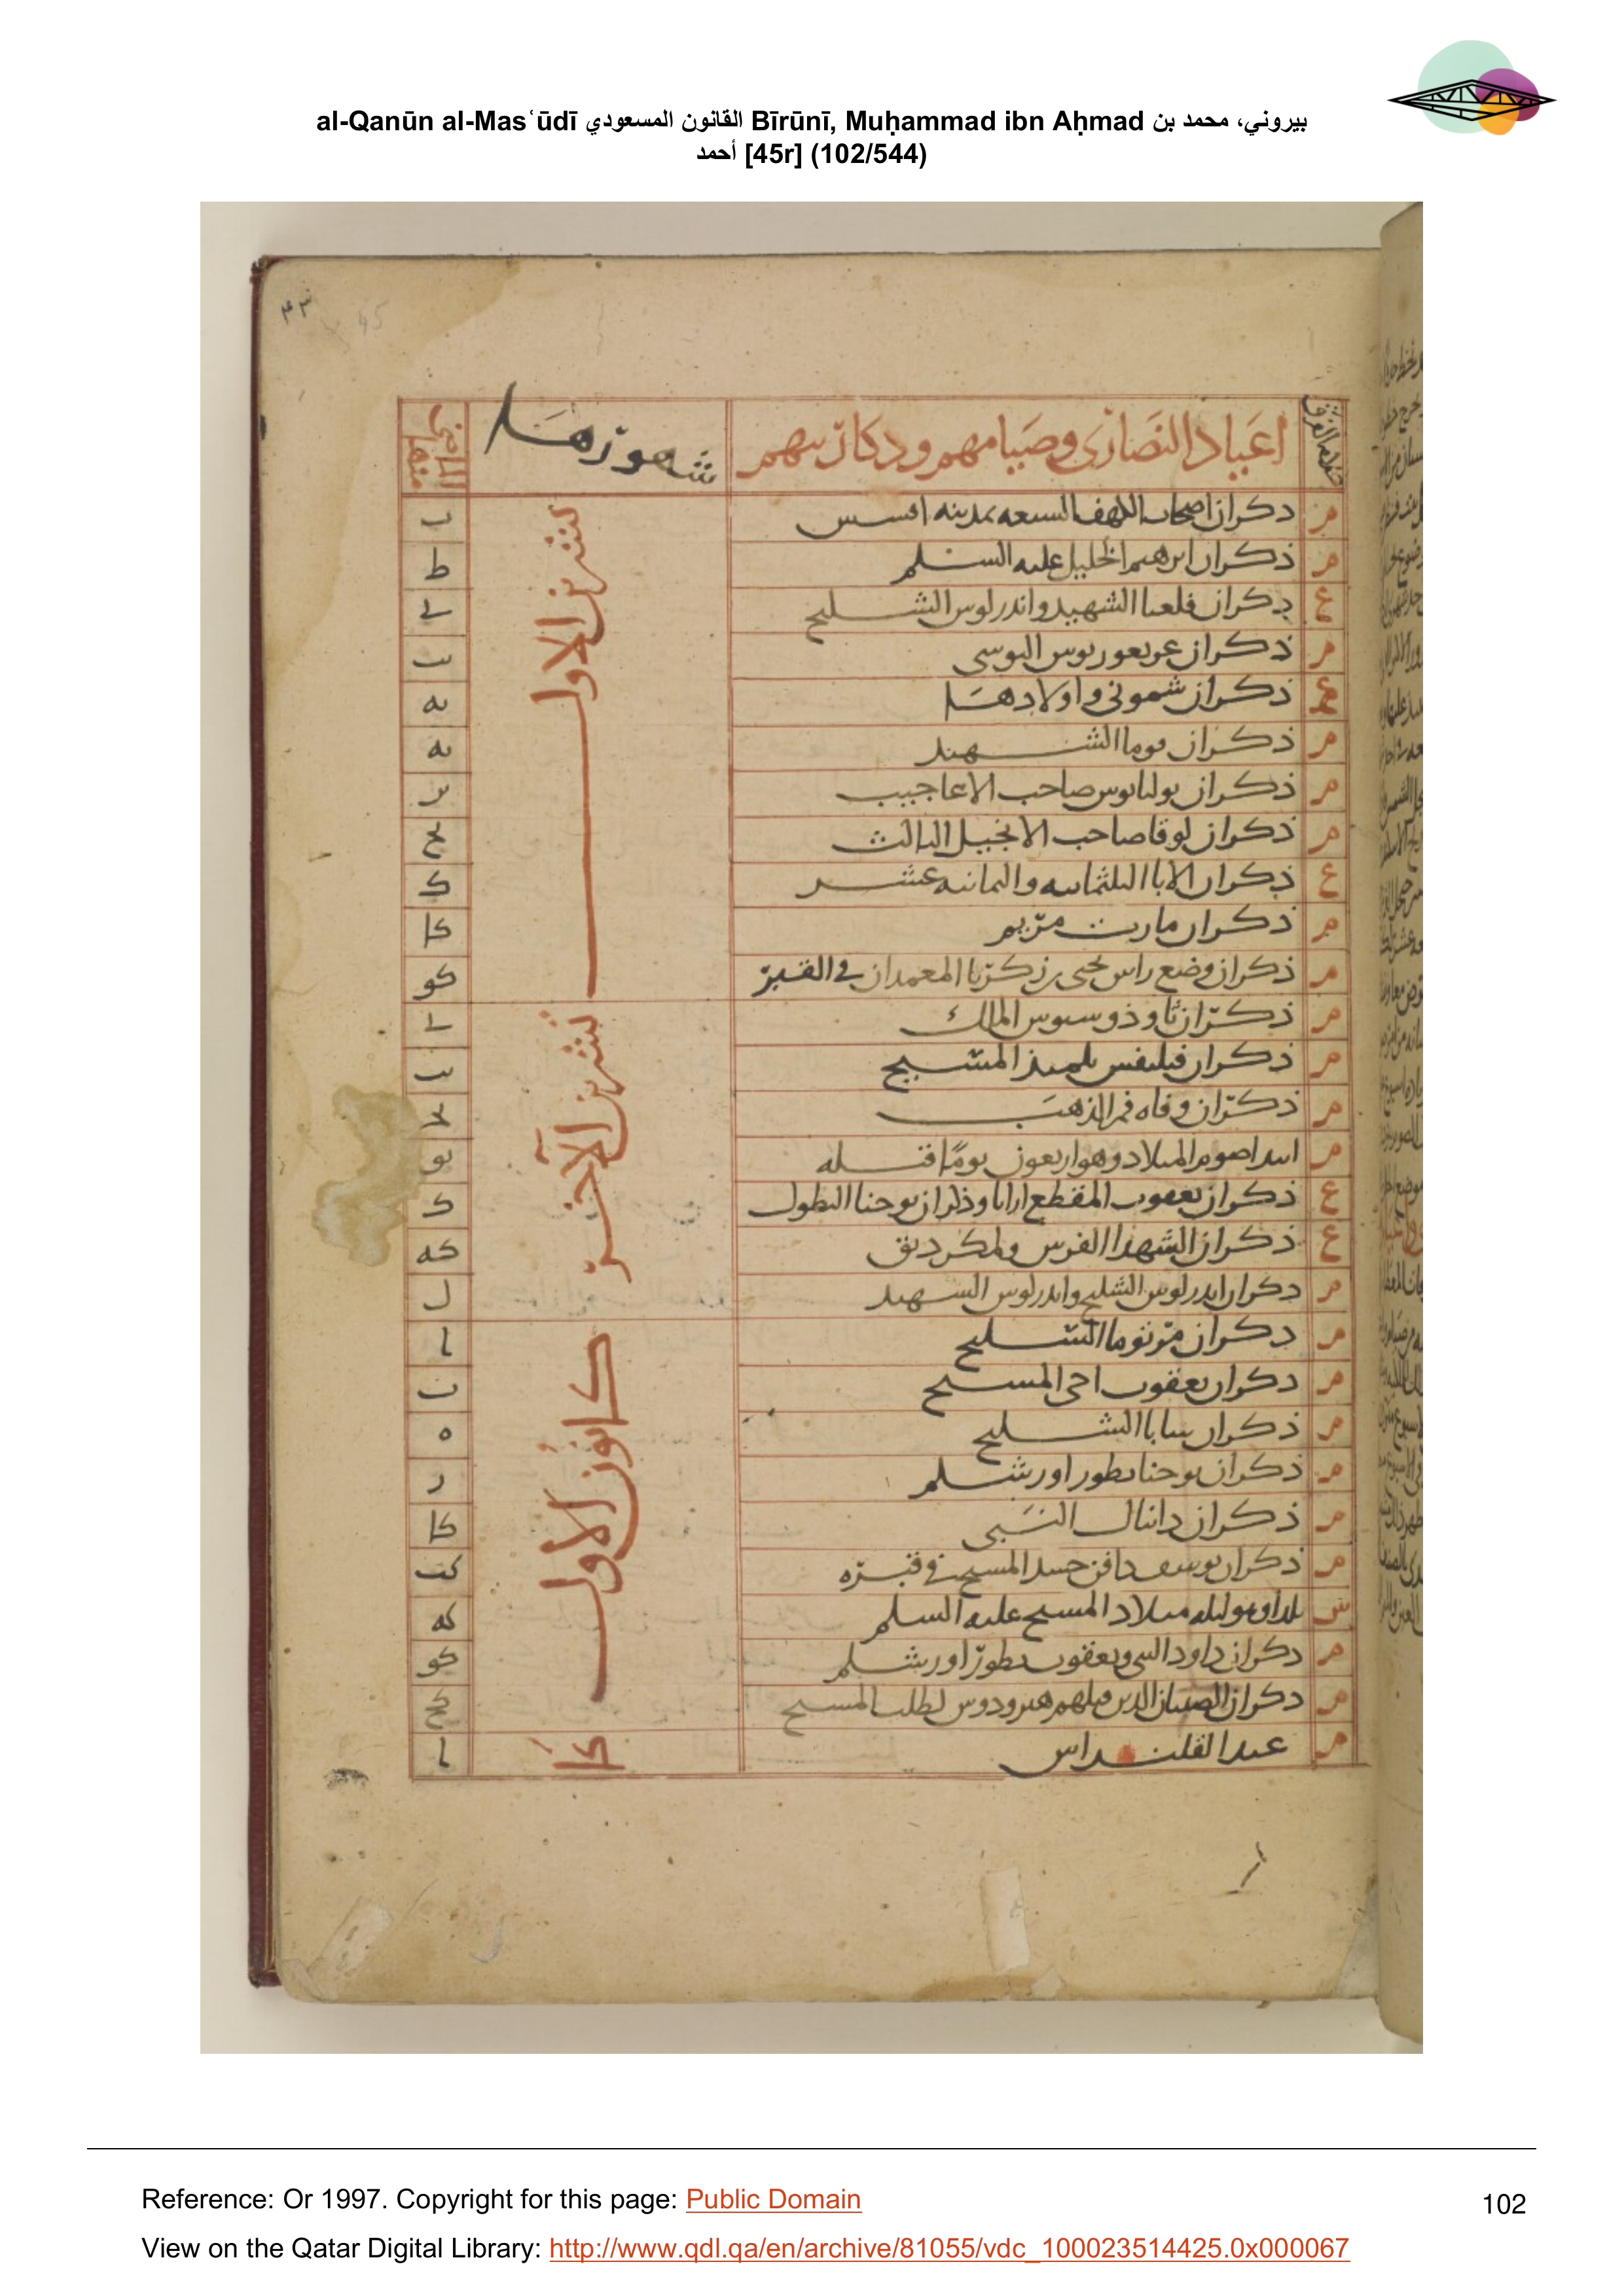 al-Qanūn al-Masʿūdī القانون المسعودي Bīrūnī, Muḥammad ibn Aḥmad بيروني، محمد بن
أحمد [45r] (102/544)
٤٣ 45
اعياد النصارى وصيامهم وذكارينهم شهورها الماضي منها
م ذكران اصحاب الكهف السبعه بمدينه افسس ب
م ذكران ابرهيم الخليل عليه السلم ط
ع ذكران الشهيد واندرلوس الشليح ى
م ذكران يب
ع ذكران شموني واولادها يه
م ذكران الشهيد يه
م ذكران صاحب الاعاجيب يز
م ذكران لوقا صاحب الانجيل الثالث يح
ع ذكران الابا الثلثمايه والثمانيه عشر ك
م ذكران مارت مريم كا
م ذكران وضع راس يحيى بن زكريا المعمدان في القبر كو
تشرين الاول
م ذكران ثاوذوسيوس الملك ى
م ذكران فيلبفس تلميذ المسيح يب
م ذكران وفاه فم الذهب يح
م ابتدا صوم الميلاد وهو اربعون يوما قبله يو
ع ذكران يعقوب المقطع ارابا وذكران يوحنا البطول ك
ع ذكران الشهدا الفرس كه
م ذكران اندرلوس الشليح واندرلوس الشهيد ل
تشرين الآخر
م ذكران مر توما الشليح ا
م ذكران يعقوب اخى المسيح ب
م ذكران سابا الشليح ه
م ذكران يوحنا بطور اورشلم ز
م ذكران دانيال النبى كا
م ذكران يوسف دافن جسد المسيح في قبره كب
س يلدا وهو ليله ميلاد المسيح عليه السلم كه
م ذكران داود النبى ويعقوب بطور اورشلم كو
م ذكران الصبيان الذين قتلهم هيرودوس لطلب المسيح كح
كانون الاول
م عيد القلنداس ا
كا
Reference: Or 1997. Copyright for this page: Public Domain
102
View on the Qatar Digital Library: http://www.qdl.qa/en/archive/81055/vdc_100023514425.0x000067